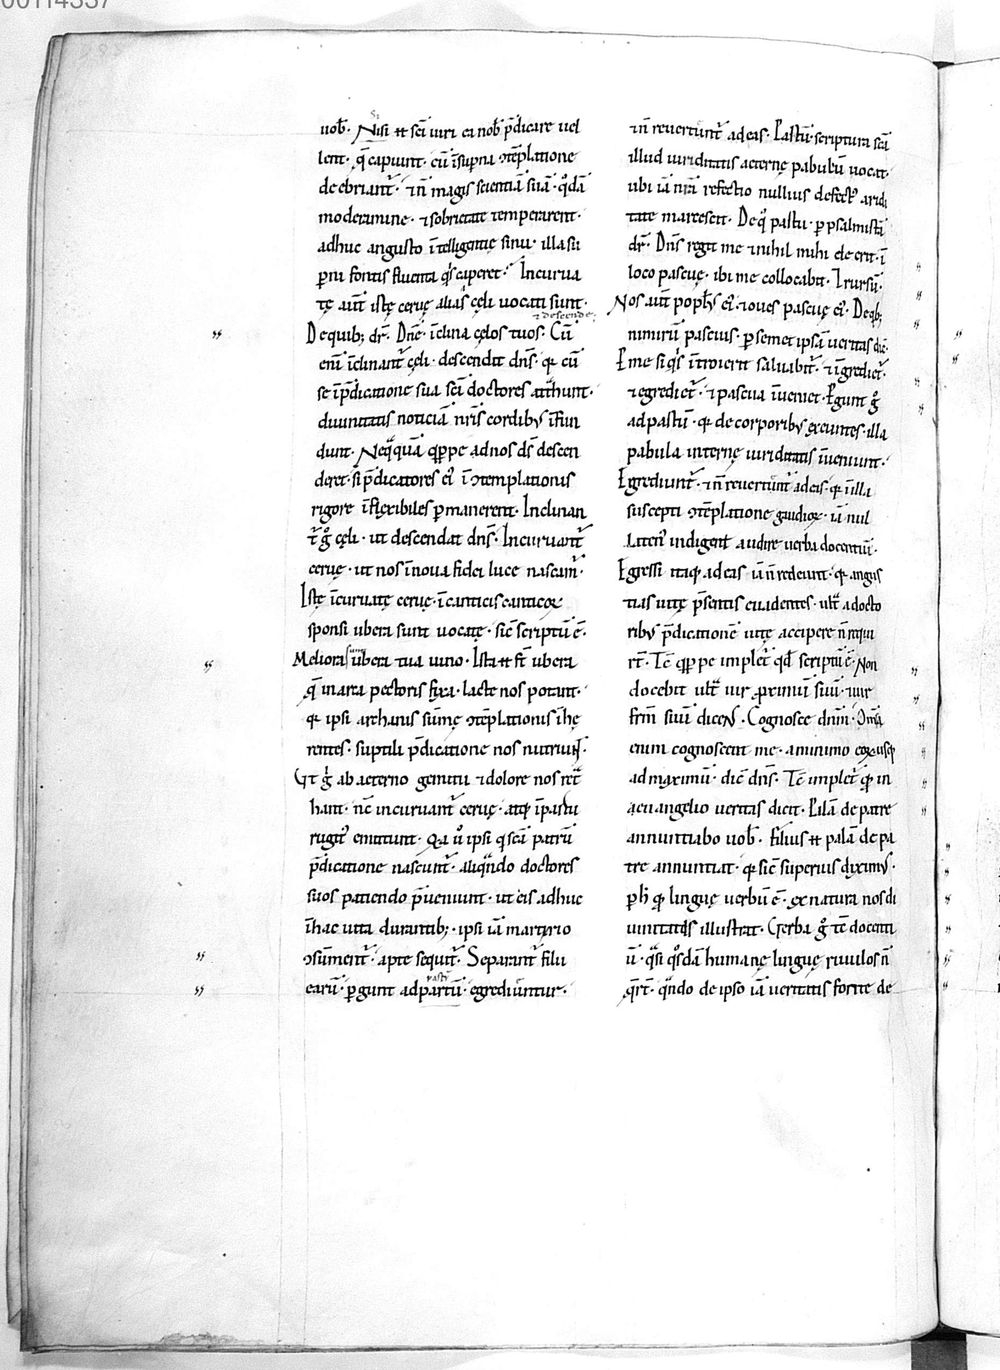 00114337
uob̄. Nisi ħ sc̄i uiri ea nob̄ p̄dicare uel
lent. q̄ capiunt. cū ī supna ꝯtēplatione
debriant̄. ñ magis scientiā suā. q̇dā
moderamine. ⁊ sobrietate temperarent.
adhuc angusto ītelligentię sinu. illa su
perni fontis fluenta q̇s caperet. Incurua
tę aut̄ istę ceruę. alias cęli uocati sunt.
⁊ descende
De quib; dr̄. Dn̄e. īclina cęlos tuos. Cū
enī īclinant̄ cęli. descendit dn̄s. q̄ cū
se ī p̄dicatione sua sc̄i doctores att̄hunt.
diuinitatis noticiā nr̄is cordibꝰ īfun
dunt. Neq̄quā q̄ppe ad nos ds̄ descen
deret. si p̄dicatores eiꝰ ī ꝯtemplationis
rigore īflexibiles ꝑmanerent. Inclinan
t̄ g̊ cęli. ut descendat dn̄s. Incuruant̄
ceruę. ut nos ī noua fidei luce nascam̄.
Istę īcuruatę ceruę. ī canticis canticoꝝ
sponsi ubera sunt uocatę. sic̄ scriptū ē.
Meliora sunt ubera tua uino. Ista ħ st̄ ubera
q̄ in arca pectoris fixa. lacte nos potant.
q̄ ipsi archanis sūmę ꝯtēplationis īhę
rentes. suptili p̄dicatione nos nutriunt.
Vt g̊ ab aeterno gemitu ⁊ dolore nos ret̄
hant. nc̄ incuruant̄ ceruę. atq; ī partu
rugitꝰ emittunt. Qa ů ipsi q̇ sc̄ā patrū
p̄dicatione nascunt̄. aliq̄ndo doctores
suos patiendo p̄ueniunt. ut eis adhuc
ī hac uita durantib; ipsi iā martyrio
ꝯsūment̄. apte sequit̄. Separant̄ filii
pastū
earū. ꝑgunt ad partū. egrediuntur.
⁊ ñ reuertunt̄ ad eas. Pastū scriptura sc̄ā
illud uiriditatis aeternę pabulū uocat.
ubi iā nr̄a refectio nullius defectꝰ aridi
tate marcescit. De q̊ pastu. ꝑ psalmistā
dr̄. Dn̄s regit me ⁊ nihil mihi deerit. ī
loco pascuę. ibi me collocabit. Et rursū.
Nos aut̄ popl̄s eiꝰ. ⁊ oues pascuę eiꝰ. De qb;
nimirū pascuis. ꝑ semet ipsā ueritas dic̄.
Per me si q̇s īntroierit saluabit̄. ⁊ ingrediet̄.
⁊ egrediet̄. ⁊ pascua īueniet. Pergunt g̊
ad pastū. q̄ de corporibꝰ exeuntes. illa
pabula internę uiriditatis īueniunt.
Egrediunt̄. ⁊ ñ reuertunt̄ ad eis. q̄ ī illa
suscepti ꝯtēplatione gaudioꝝ. iā nul
laten̄ indigent audire uerba docentiū.
Egressi itaq; ad eas iā ñ redeunt. q̄ angus
tias uitę p̄sentis euadentes. ult̄ a docto
ribꝰ p̄dicationē uitę accipere ñ requi
rt̄. Tc̄ q̄ppe implet̄ qd̄ scriptū ē. Non
docebit ult̄ uir ꝓximū suū. ⁊ uir
frm̄ suū dicens. Cognosce dnm̄. Om̄s
enim cognoscent me. a minimo eoꝝ usq;
ad maximū. dic̄ dn̄s. Tc̄ implet̄ q̄ in
aeuangelio ueritas dicit. Palā de patre
annuntiabo uob̄. Filius ħ palā de pa
tre annuntiat. q̄ sic̄ superius diximꝰ.
ꝑ h̄ q̄ linguę uerbū ē. ex natura nos di
uinitatis illustrat. Verba g̊ tc̄ docenti
ū. q̄si q̇sdā humanę linguę riuulos ñ
q̄rt̄. q̄ndo de ipso iā ueritatis fonte de